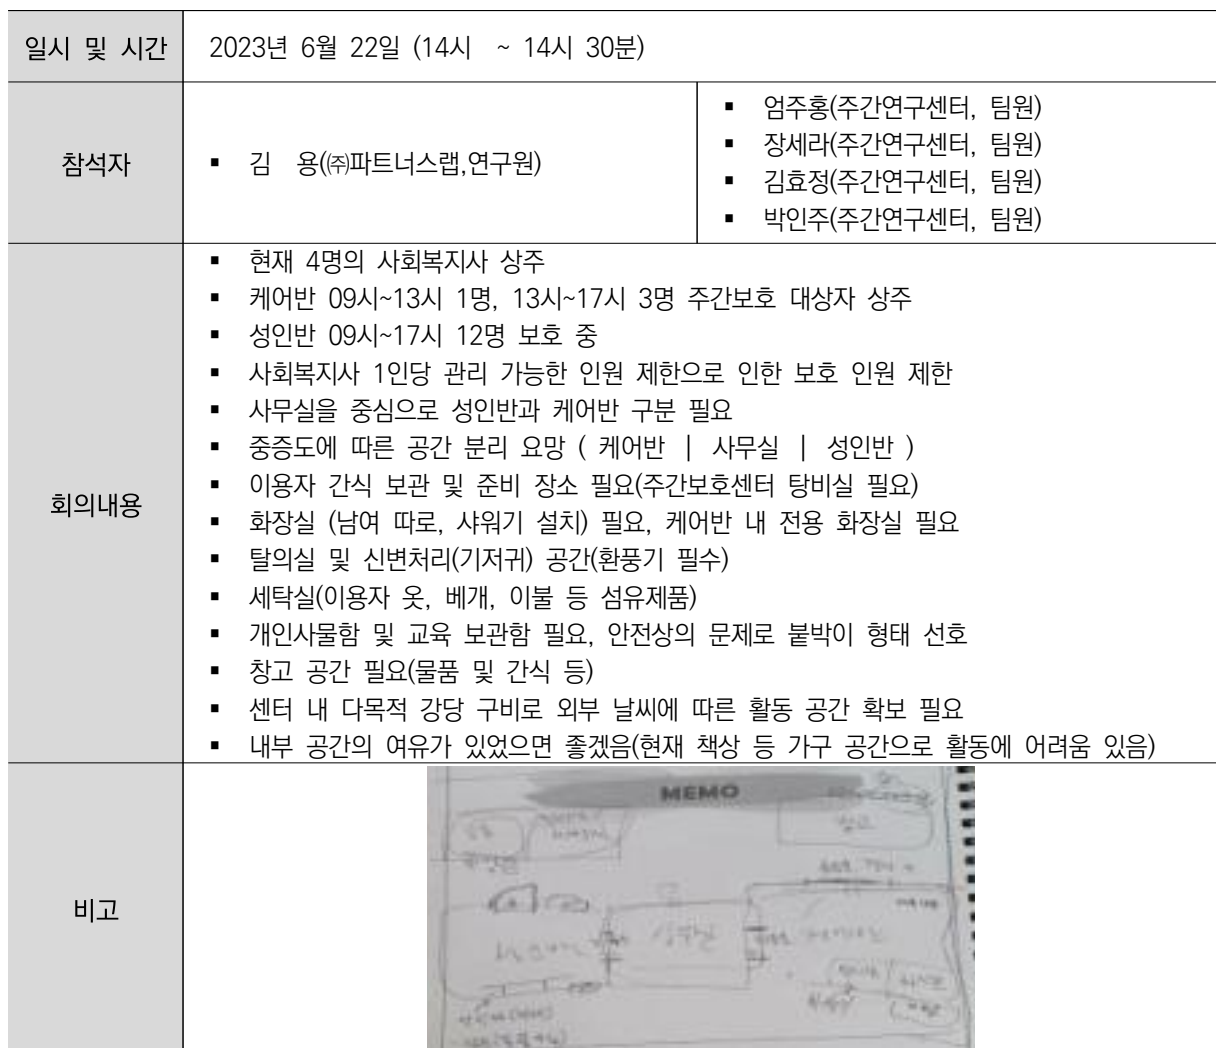 일시 및 시간
2023년 6월 22일 (14시 ~ 14시 30분)
참석자
▪ 김 용(㈜파트너스랩,연구원)
▪ 엄주홍(주간연구센터, 팀원)
▪ 장세라(주간연구센터, 팀원)
▪ 김효정(주간연구센터, 팀원)
▪ 박인주(주간연구센터, 팀원)
회의내용
▪ 현재 4명의 사회복지사 상주
▪ 케어반 09시~13시 1명, 13시~17시 3명 주간보호 대상자 상주
▪ 성인반 09시~17시 12명 보호 중
▪ 사회복지사 1인당 관리 가능한 인원 제한으로 인한 보호 인원 제한
▪ 사무실을 중심으로 성인반과 케어반 구분 필요
▪ 중증도에 따른 공간 분리 요망 ( 케어반 | 사무실 | 성인반 )
▪ 이용자 간식 보관 및 준비 장소 필요(주간보호센터 탕비실 필요)
▪ 화장실 (남여 따로, 샤워기 설치) 필요, 케어반 내 전용 화장실 필요
▪ 탈의실 및 신변처리(기저귀) 공간(환풍기 필수)
▪ 세탁실(이용자 옷, 베개, 이불 등 섬유제품)
▪ 개인사물함 및 교육 보관함 필요, 안전상의 문제로 붙박이 형태 선호
▪ 창고 공간 필요(물품 및 간식 등)
▪ 센터 내 다목적 강당 구비로 외부 날씨에 따른 활동 공간 확보 필요
▪ 내부 공간의 여유가 있었으면 좋겠음(현재 책상 등 가구 공간으로 활동에 어려움 있음)
비고
MEMO
창고
사무실